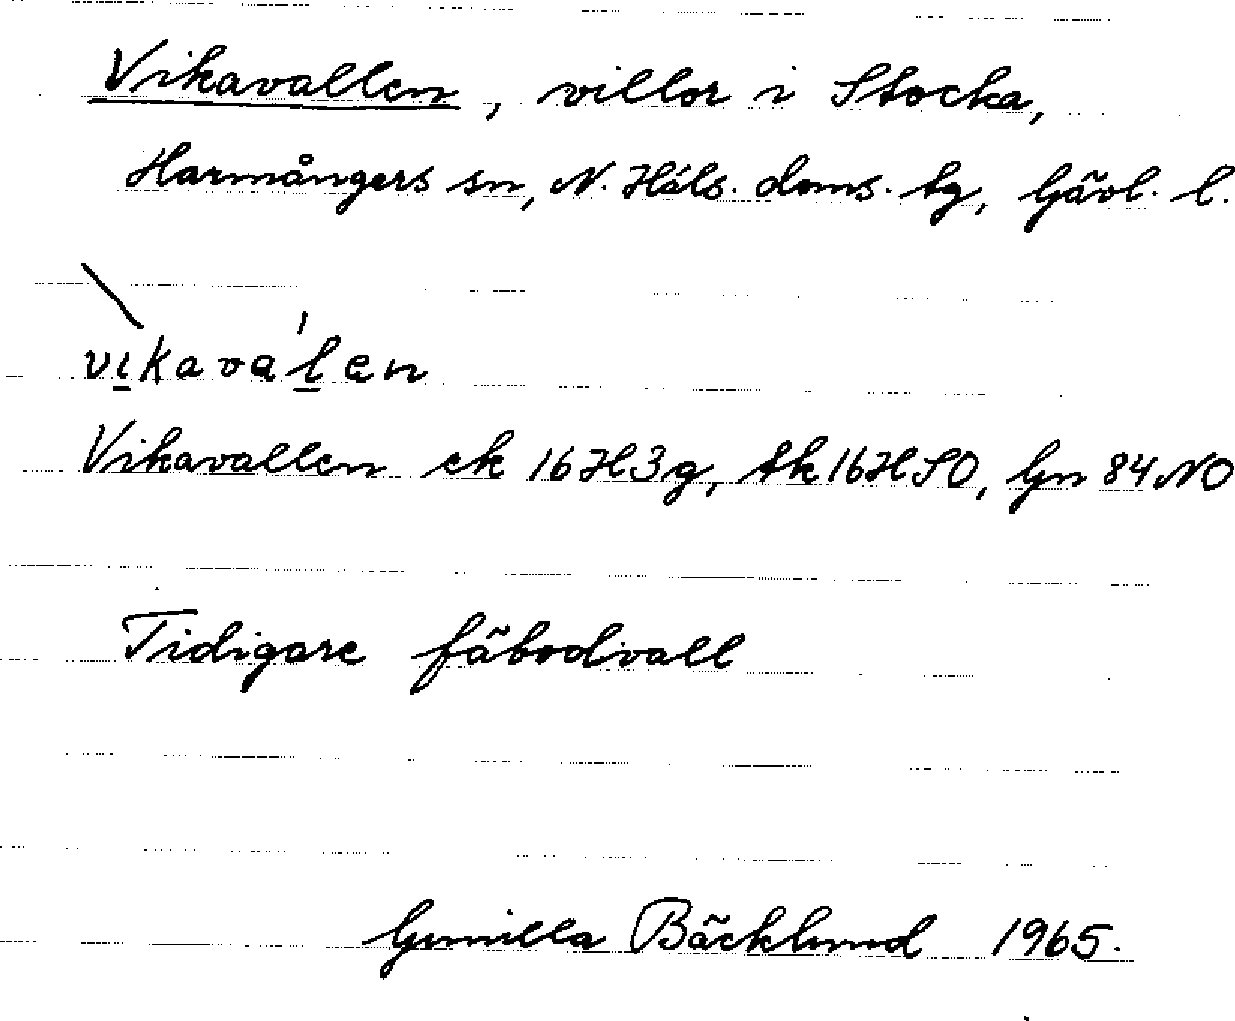 Vikavallen, villor i Stocka,
Harmångers sn, N. Häls. doms. tg, Gävl. l.
vi̠kavàl̠en
Vikavallen ek 16H3g, tk 16HSO, Gn 84 NO
Tidigare fäbodvall
Gunilla Bäcklund 1965.